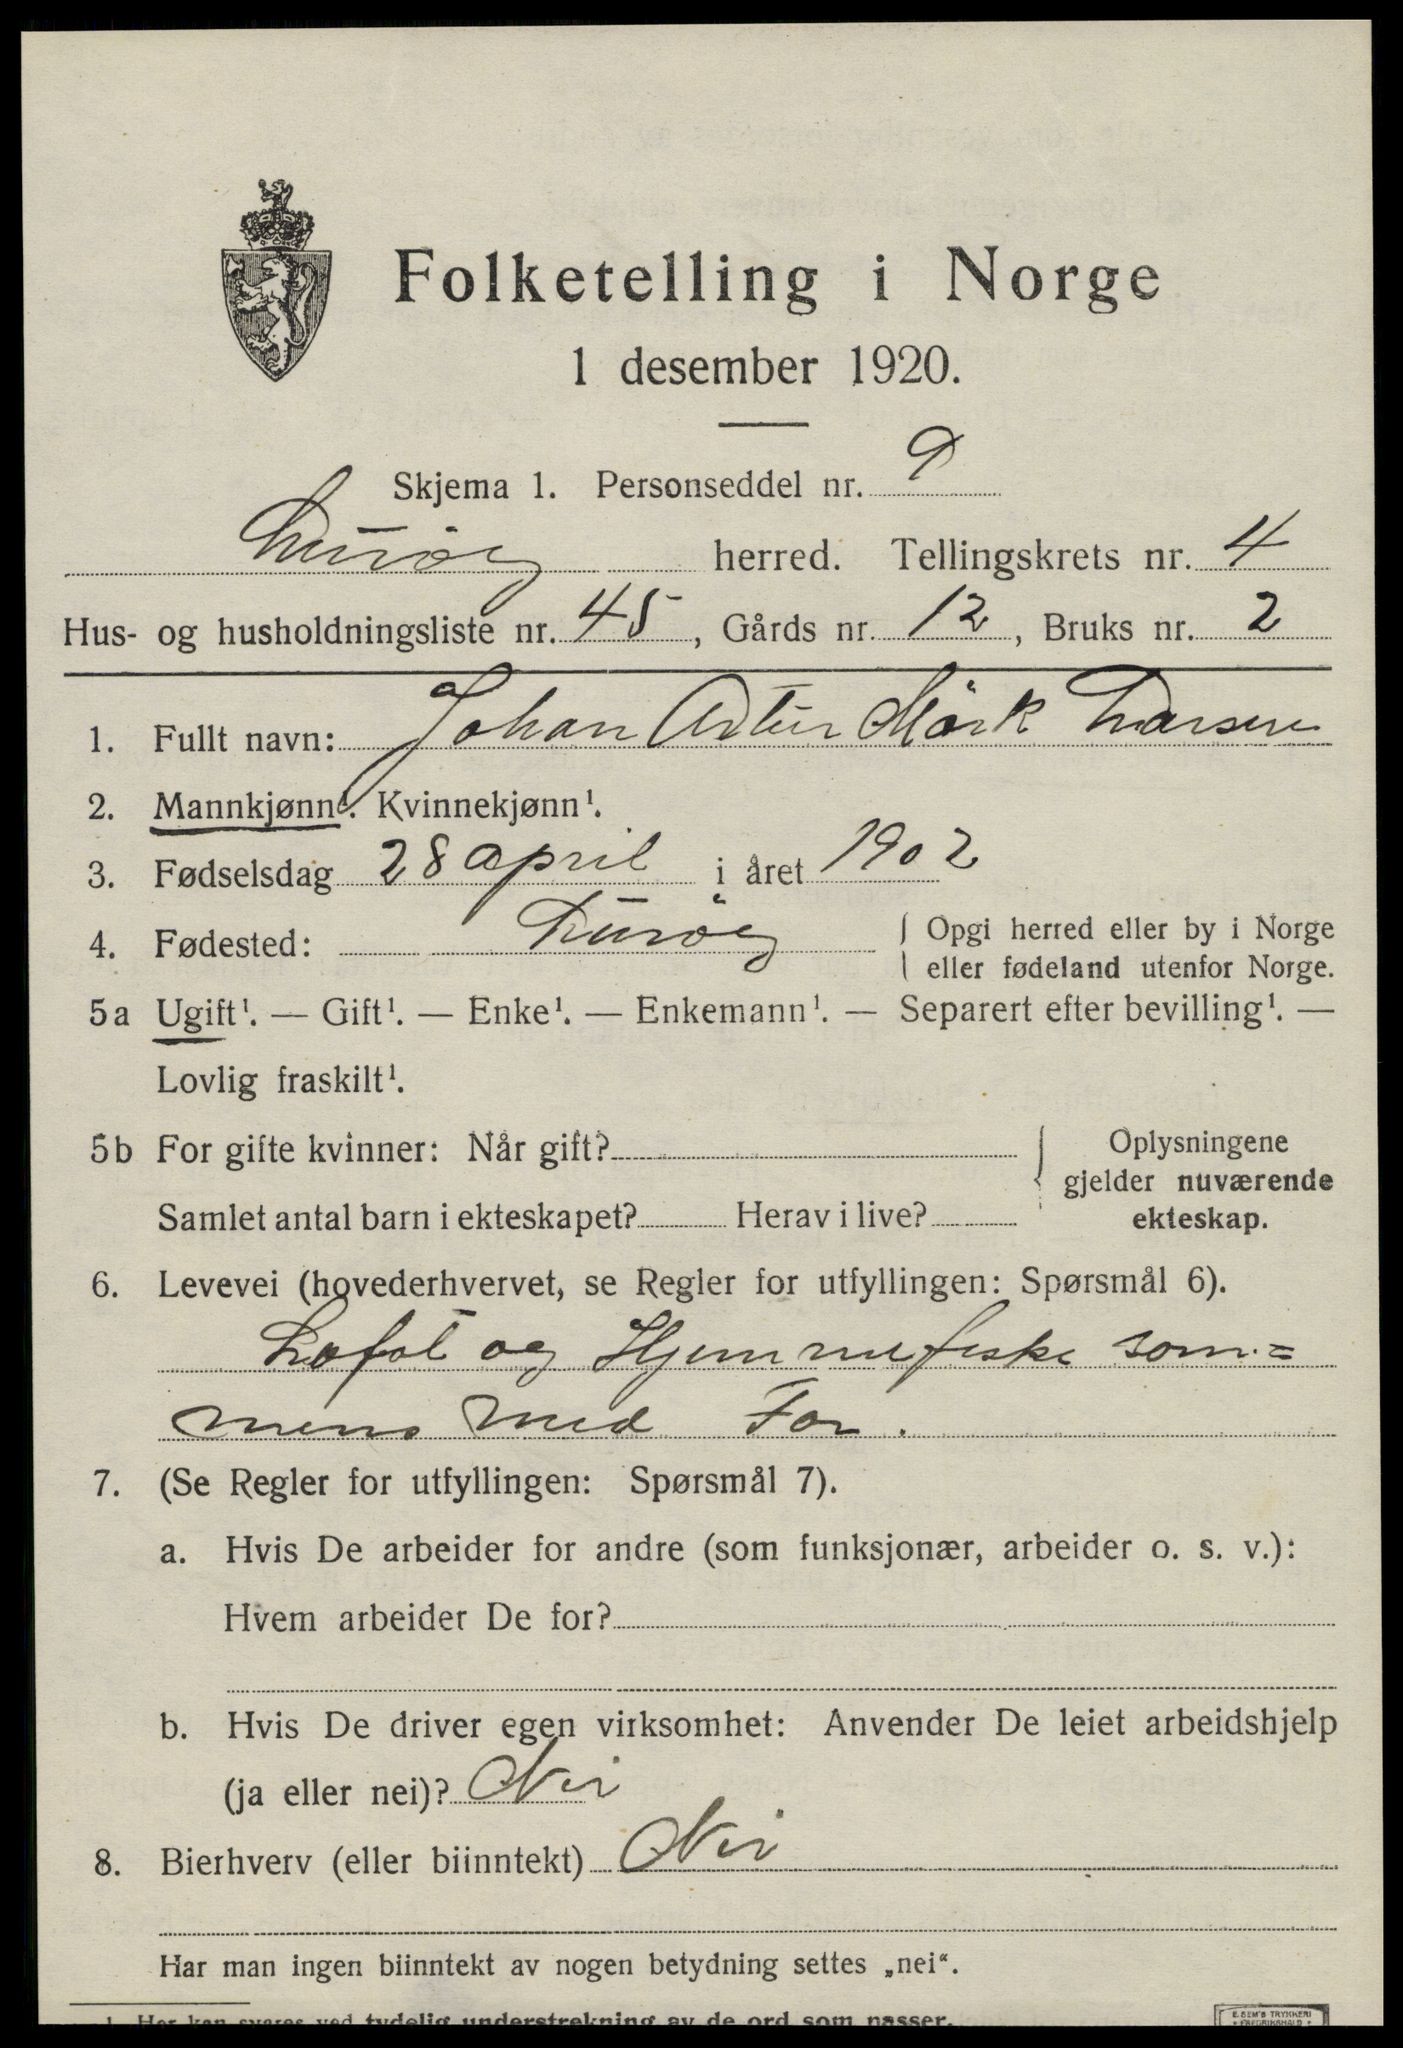 Folketelling i Norge
1 desember 1920.
Skjema 1. Personseddel nr. 9
Lurøy herred. Tellingskrets nr. 4
Hus- og husholdningsliste nr. 45, Gårds nr. 12, Bruks nr. 2
1. Fullt navn: Johan Artur Mørk Larsen
2. Mannkjønn¹. Kvinnekjønn¹.
3. Fødselsdag 28 april i året 1902
4. Fødested: Lurøy { Opgi herred eller by i Norge
eller fødeland utenfor Norge.
5a Ugift¹. — Gift¹. — Enke¹. — Enkemann¹. — Separert efter bevilling¹. —
Lovlig fraskilt¹.
5b For gifte kvinner: Når gift? } Oplysningene
gjelder nuværende
Samlet antal barn i ekteskapet? Herav i live? ekteskap.
6. Levevei (hovederhvervet, se Regler for utfyllingen: Spørsmål 6).
Lofot og Hjemmefiske som=
mens med Far.
7. (Se Regler for utfyllingen: Spørsmål 7).
a. Hvis De arbeider for andre (som funksjonær, arbeider o. s. v.):
Hvem arbeider De for?
b. Hvis De driver egen virksomhet: Anvender De leiet arbeidshjelp
(ja eller nei)? Nei
8. Bierhverv (eller biinntekt) Nei
Har man ingen biinntekt av nogen betydning settes „nei“.
1. Her kan svares ved tydelig understrekning av de ord som passer.
E. SEM'S TRYKKERI
FREDRIKSHALD